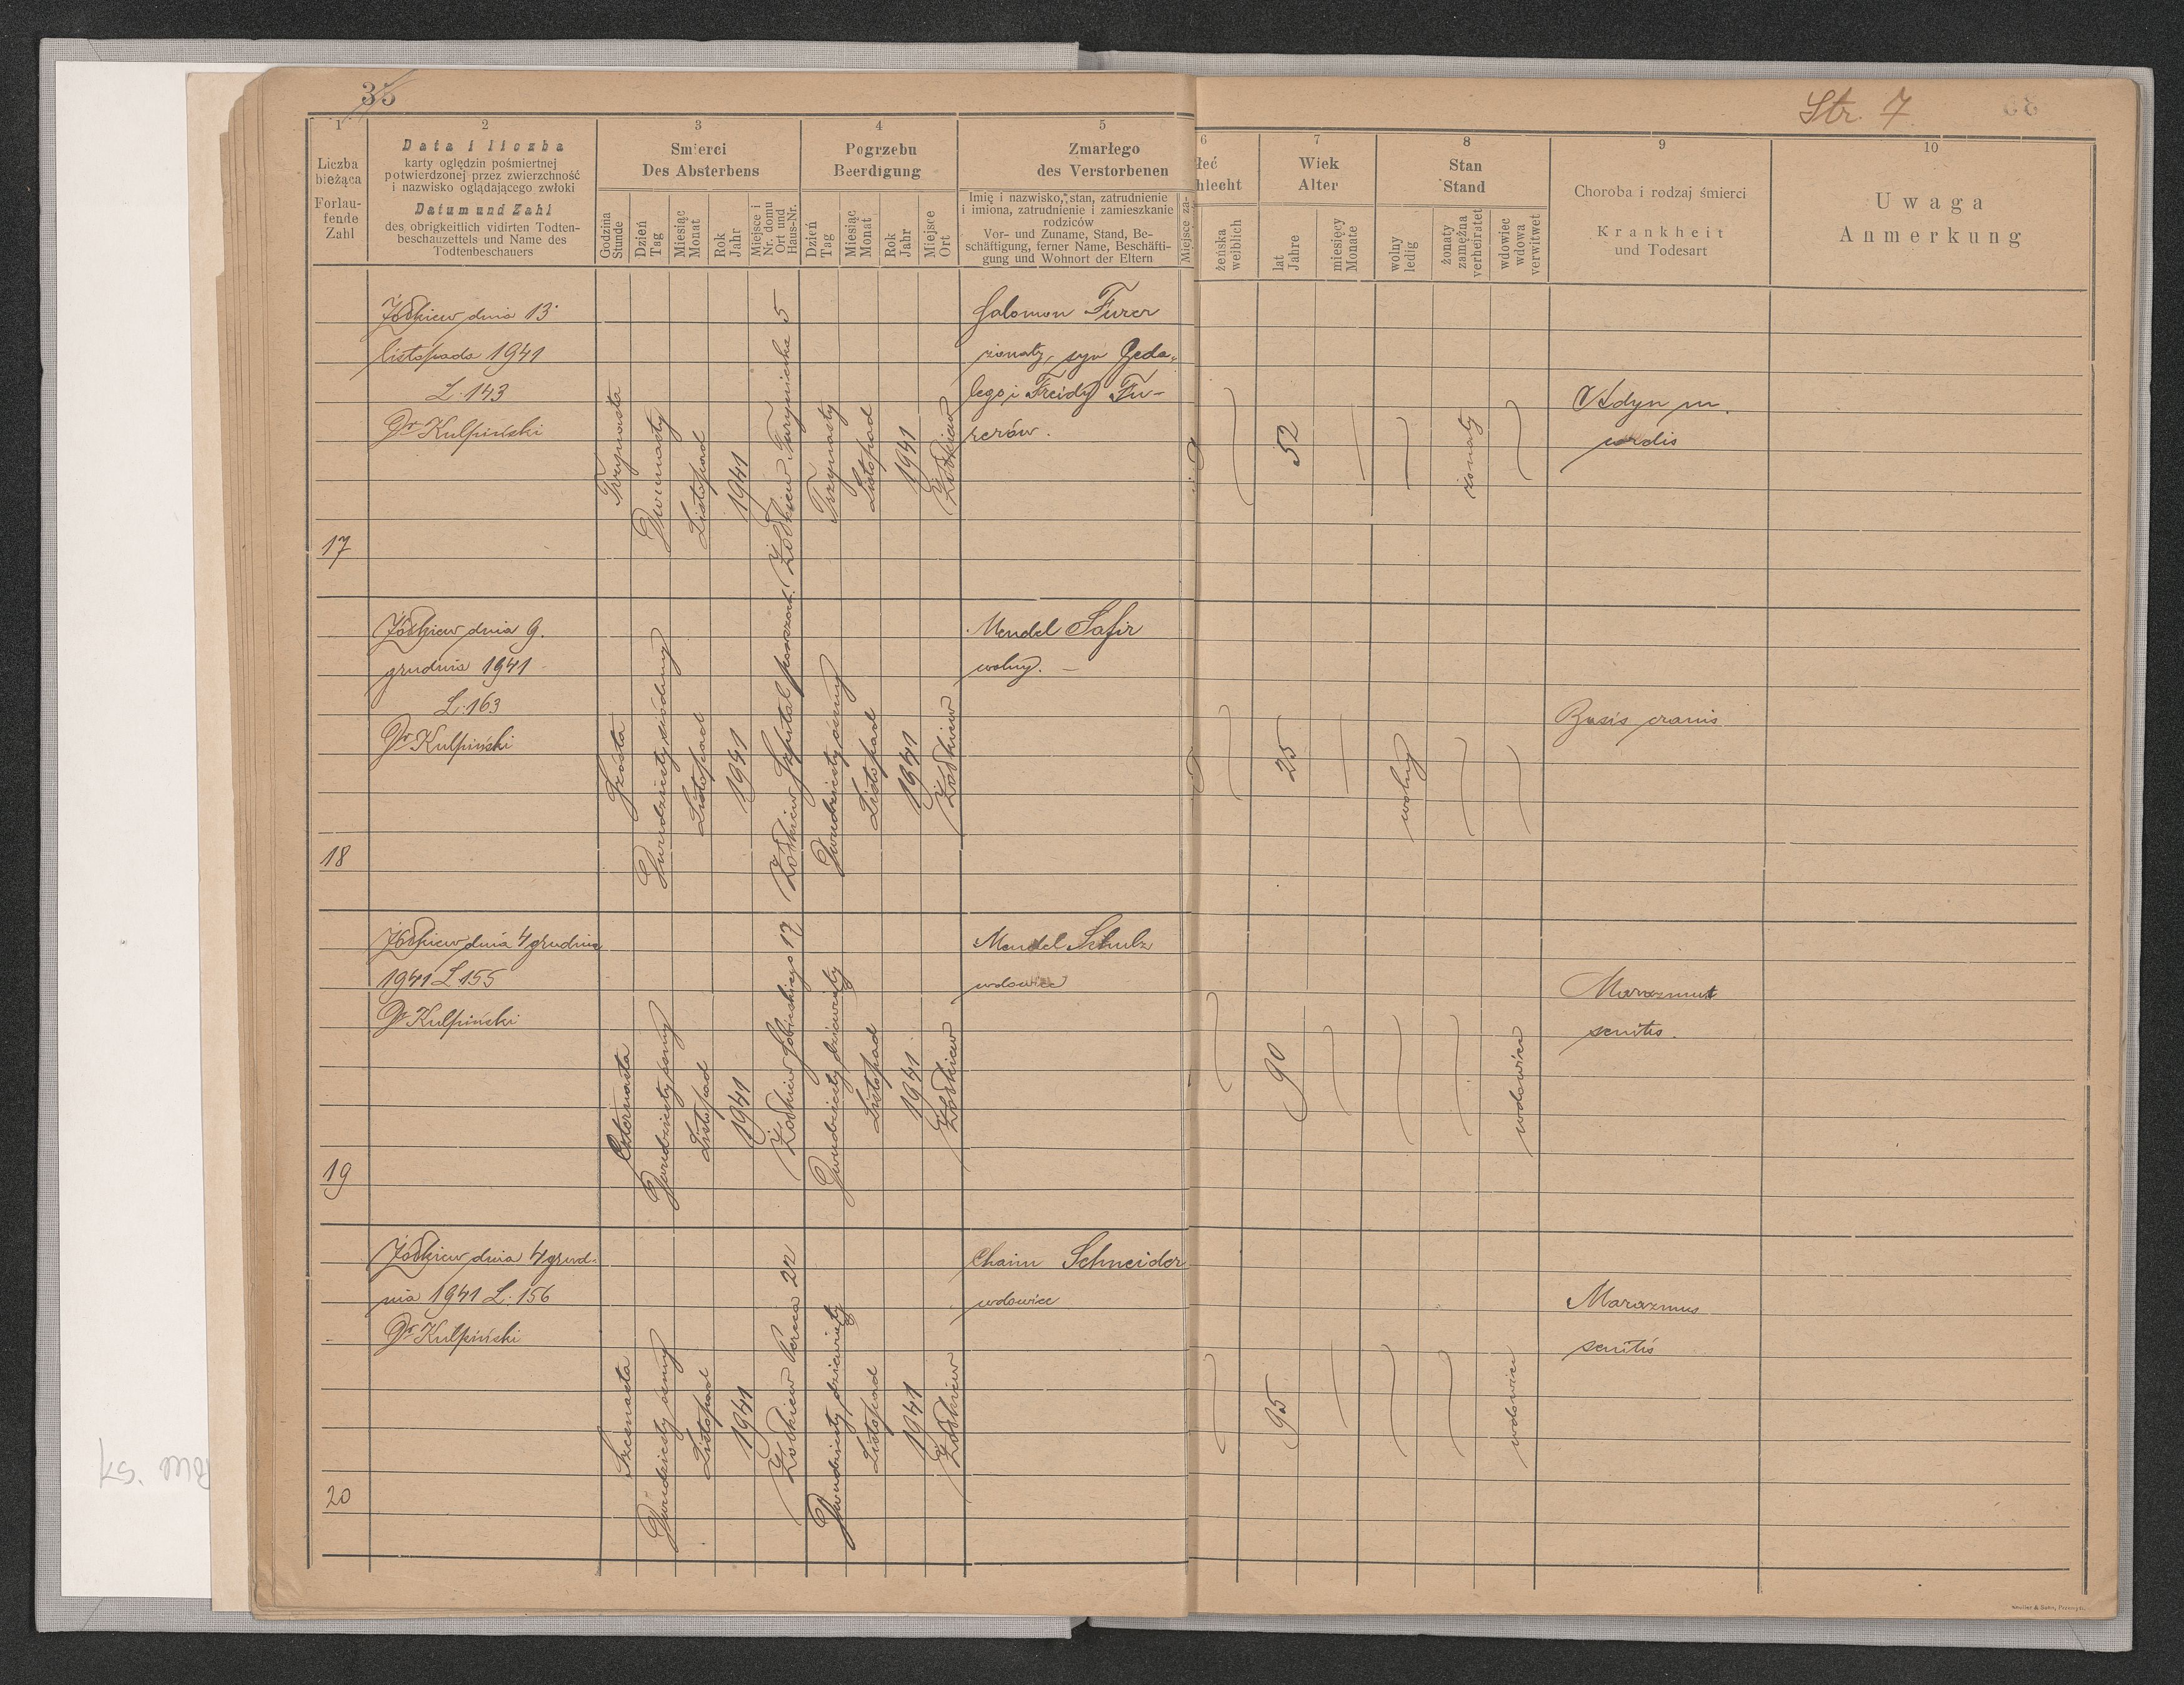 35
Str. 7
1
2
3
4
5
6
7
8
9
10
Liczba
bieżąca
Forlau-
fende
Zahl
Data i liczba
karty oględzin pośmiertnej
potwierdzonej przez zwierzchność
i nazwisko oglądającego zwłoki
Datum und Zahl
des obrigkeitlich vidirten Todten-
beschauzettels und Name des
Todtenbeschauers
Śmierci
Des Absterbens
Godzina
Stunde
Dzień
Tag
Miesiąc
Monat
Rok
Jahr
Miejsce i
Nr. domu
Ort und
Haus-Nr.
Pogrzebu
Beerdigung
Dzień
Tag
Miesiąc
Monat
Rok
Jahr
Miejsce
Ort
Zmarłego
des Verstorbenen
Imię i nazwisko, stan, zatrudnienie
i imiona, zatrudnienie i zamieszkanie
rodziców
Vor- und Zuname, Stand, Be-
schäftigung, ferner Name, Beschäfti-
gung und Wohnort der Eltern
Miejsce za-
łeć
hlecht
żeńska
weiblich
Wiek
Alter
lat
Jahre
miesięcy
Monate
Stan
Stand
wolny
ledig
żonaty
zamężna
verheiratet
wdowiec
wdowa
verwitwet
Choroba i rodzaj śmierci
Krankheit
und Todesart
Uwaga
Anmerkung
17
Żółkiew dnia 13
listopada 1941
L. 143
Dr Kulpiński
Trzynasta
Dwunasty
Listopad
1941
Żółkiew 5
Trzynasty
Listopad
1941
Żółkiew
Salomon Furer
żonaty, syn Geda-
lego i Freidy Fu-
rerów.
52
żonaty
m.
cordis
18
Żółkiew dnia 9.
grudnia 1941
L. 163
Dr Kulpiński
Szósta
Dwudziesty siódmy
Listopad
1941
Żółkiew Szpital powszech.
Dwudziesty ósmy
Listopad
1941
Żółkiew
Mendel Safir
wolny. —
25
wolny
Basis cranis
19
Żółkiew dnia 4 grudnia
1941 L 155
Dr Kulpiński
Czternasta
Dwudziesty ósmy
Listopad
1941
Żółkiew Sobieskiego 17
Dwudziesty dziewiąty
Listopad
1941
Żółkiew
Mendel Schulz
wdowiec
90
wdowiec
Marazmus
senilis.
20
Żółkiew dnia 4 grud-
nia 1941 L. 156
Dr Kulpiński
Szesnasta
Dwudziesty ósmy
Listopad
1941
Żółkiew Pereca 22
Dwudziesty dziewiąty
Listopad
1941
Żółkiew
Chaim Schneider
wdowiec
95
wdowiec
Marazmus
senilis